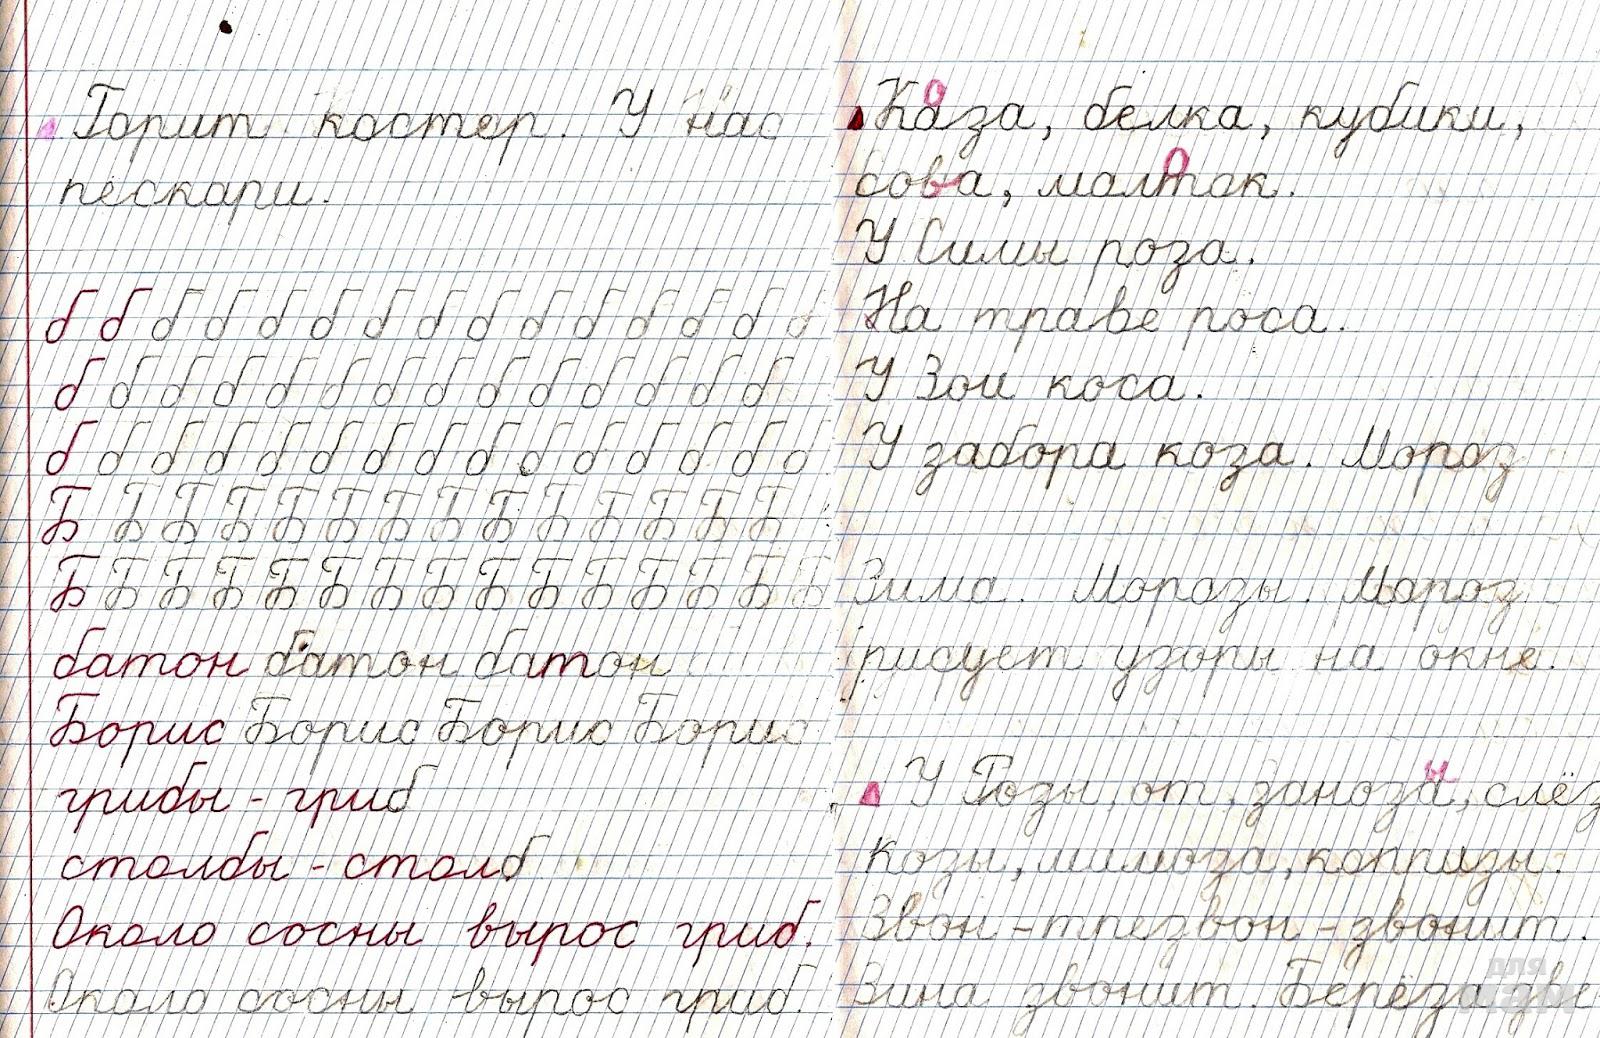 Горит костер. У нас
пескари.
б б б б б б б б б б б б б б б
б б б б б б б б б б б б б б
б б б б б б б б б б б б б б б
Б Б Б Б Б Б Б Б Б Б Б Б Б Б
Б Б Б Б Б Б Б Б Б Б Б Б Б Б Б
батон батон батон
Борис Борис Борис Борис
грибы - гриб
столбы - столб
Около сосны вырос гриб.
Около сосны вырос гриб.
о
Каза, белка, кубики,
о
сова, малток.
У Симы роза.
На траве роса.
У Зои коса.
У забора коза. Мороз
Зима. Морозы. Мороз
рисует узоры на окне.
ы
У Розы, от, заноза, слёз
козы, мимоза,
Звон - трезвон - звонит.
Зина звонит. Берёза
для
мам